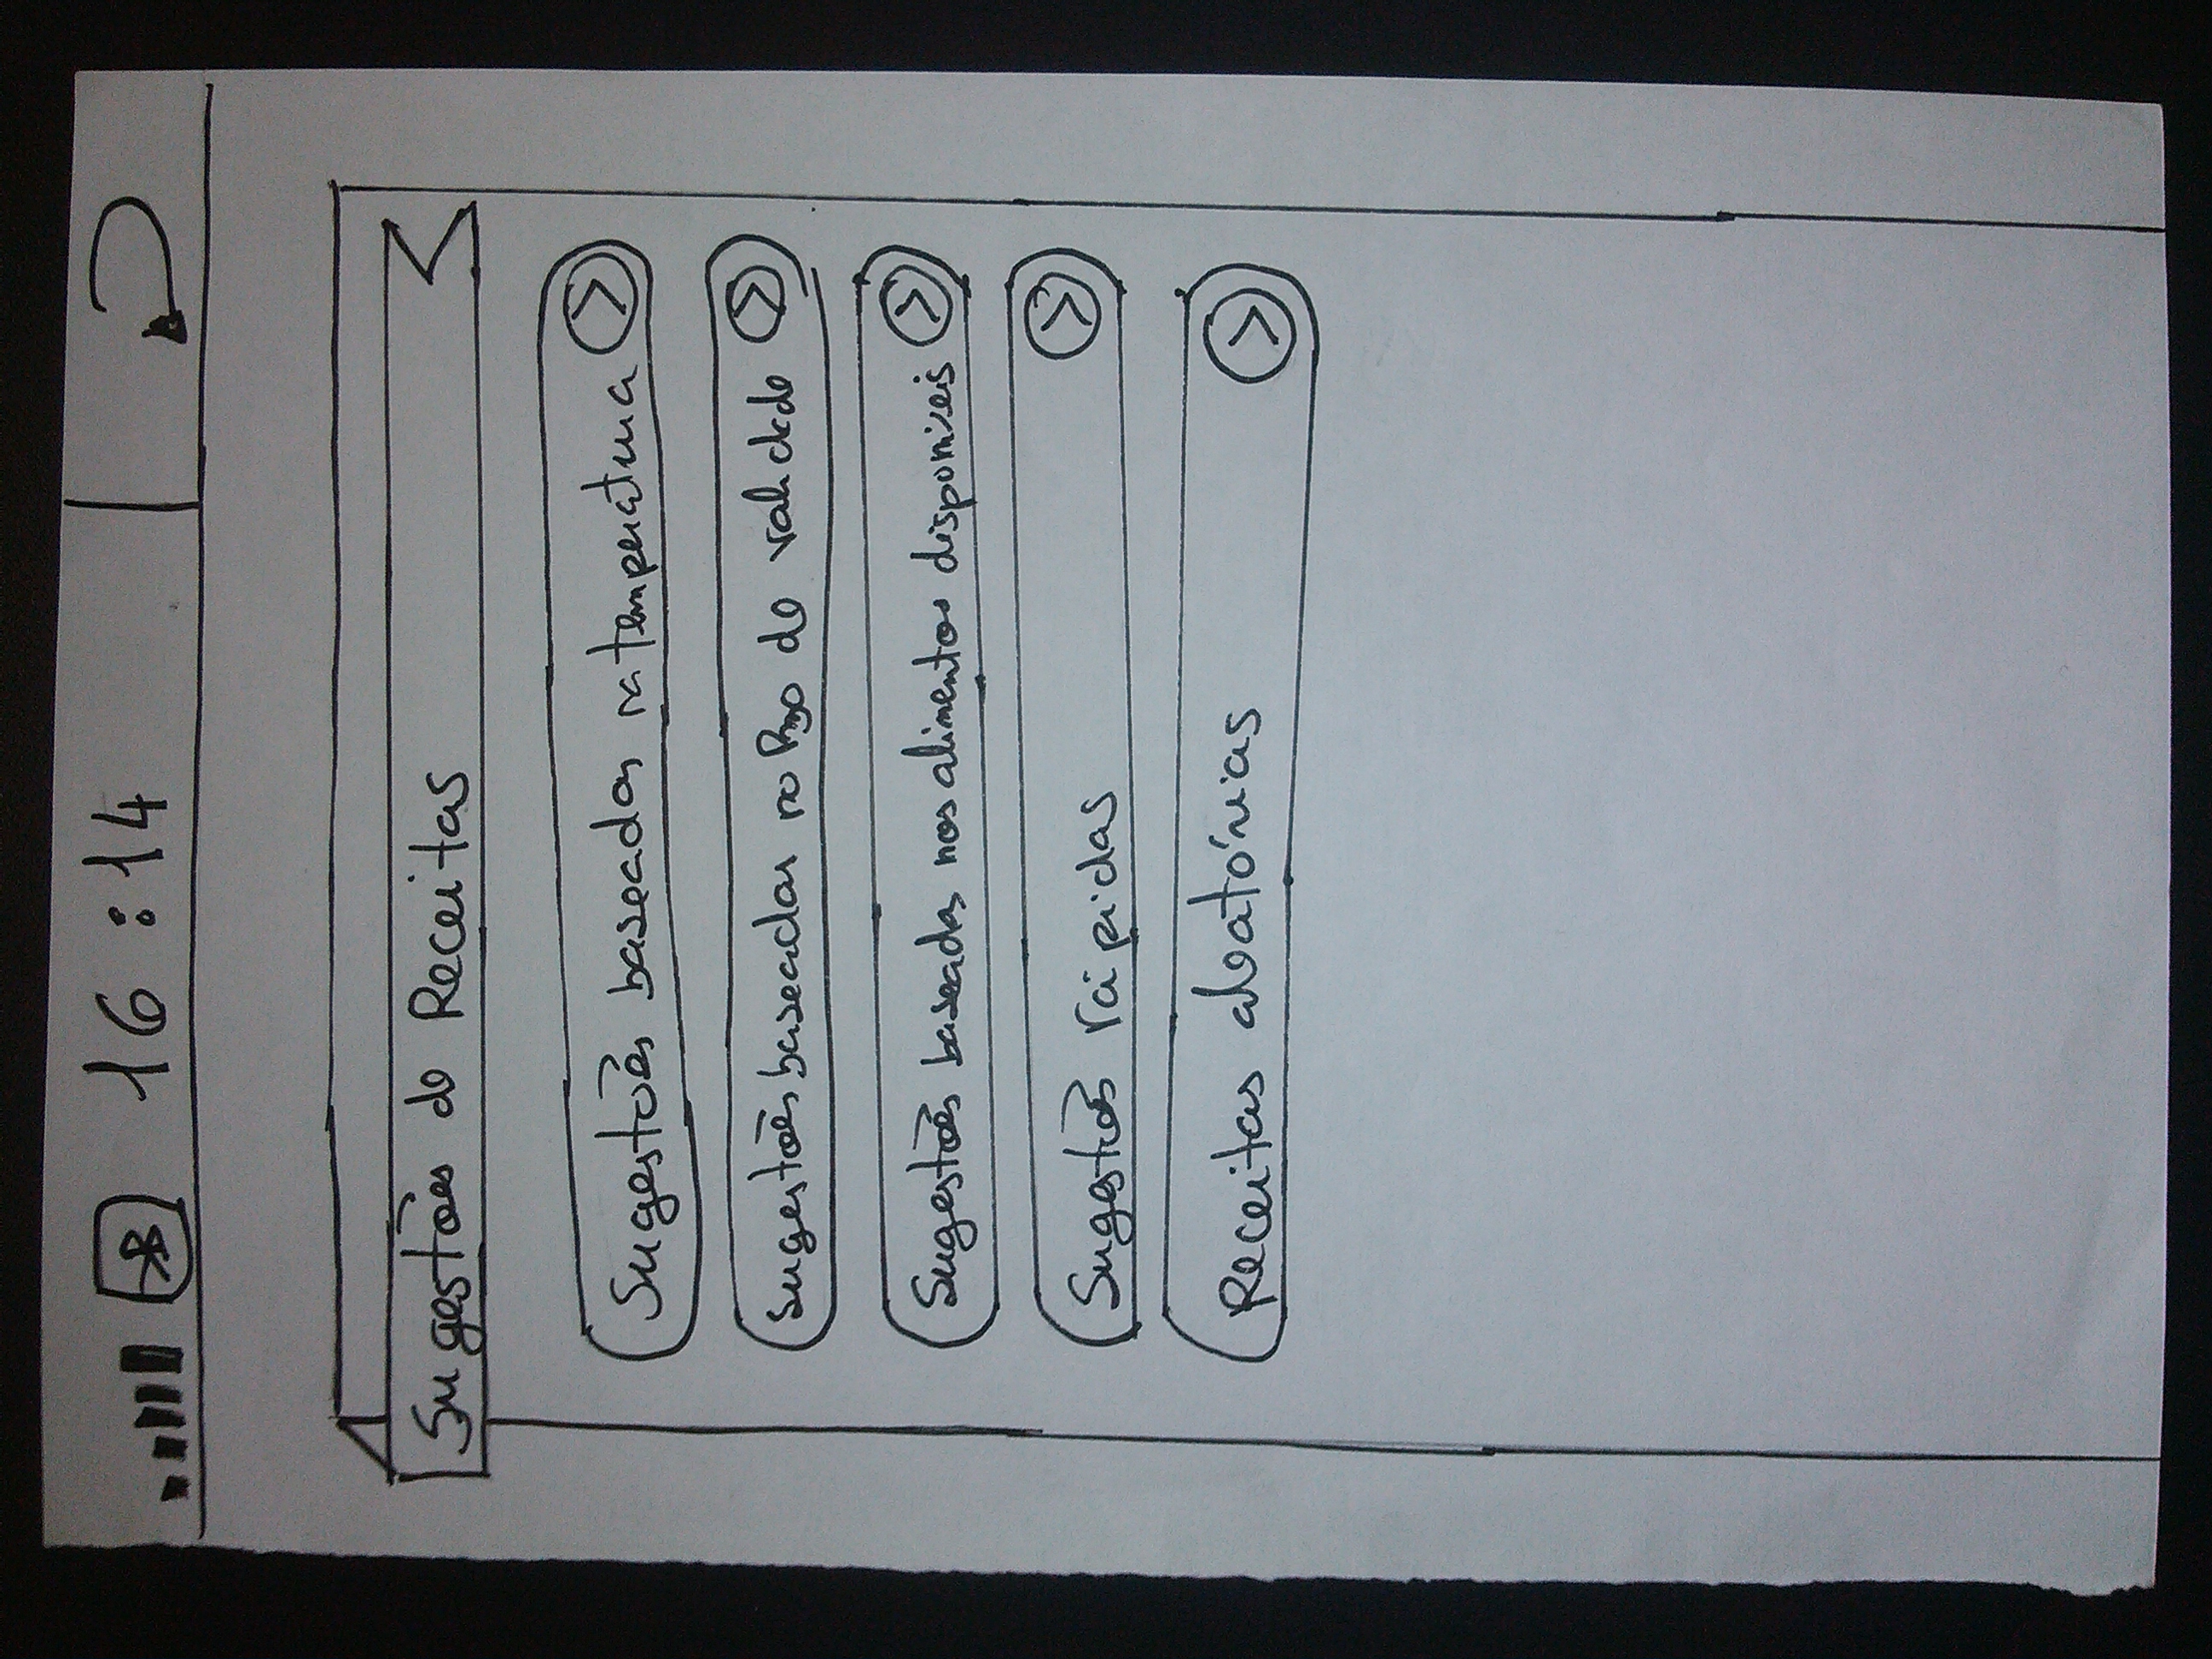 16:14
Sugestões de Receitas
Sugestões baseadas na temperatura
Sugestões baseadas no Prazo de validade
Sugestões baseadas nos alimentos disponíveis
Sugestões rápidas
Receitas aleatórias